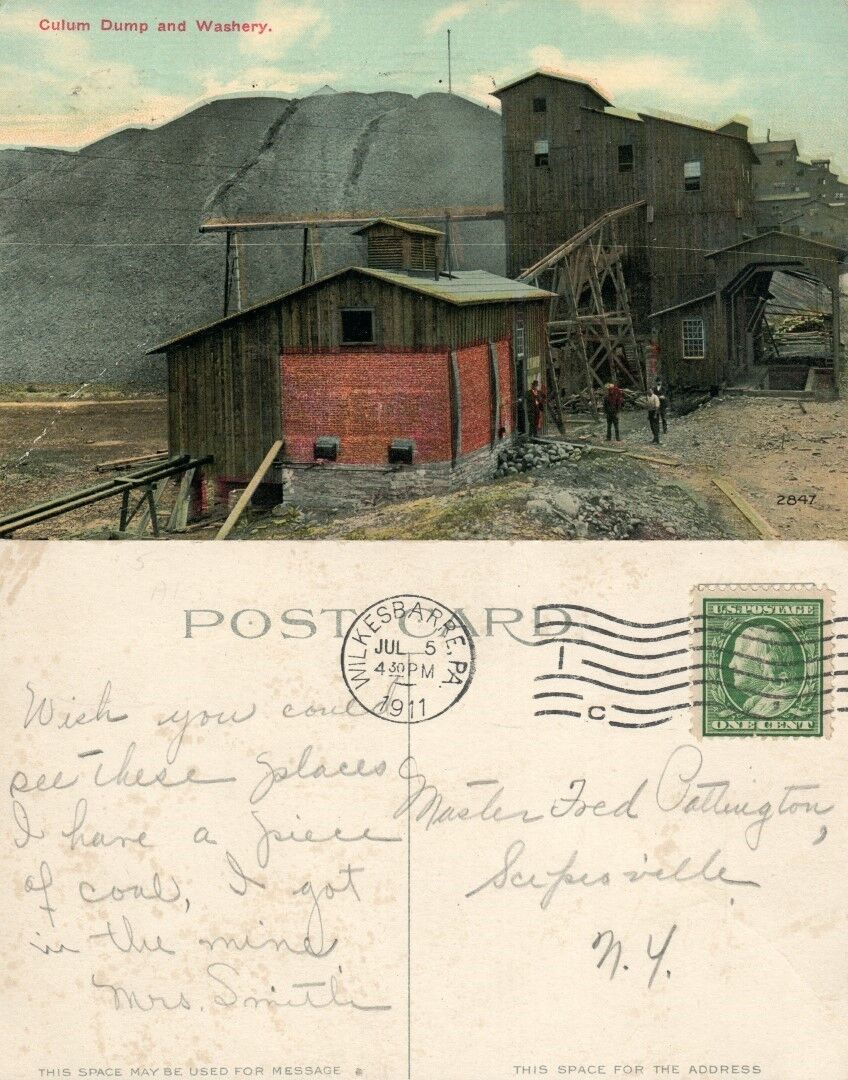 Culum Dump and Washery.
2847
POST CARD
WILKESBARRE, PA.
JUL 5
4 30 PM
1911
1
C
U.S. POSTAGE
ONE CENT
Wish you could
see these places
I have a piece
of coal, I got
in the mine,
Mrs. Smith
Master Fred Pattington,
Scipioville
N.Y.
THIS SPACE MAY BE USED FOR MESSAGE
THIS SPACE FOR THE ADDRESS